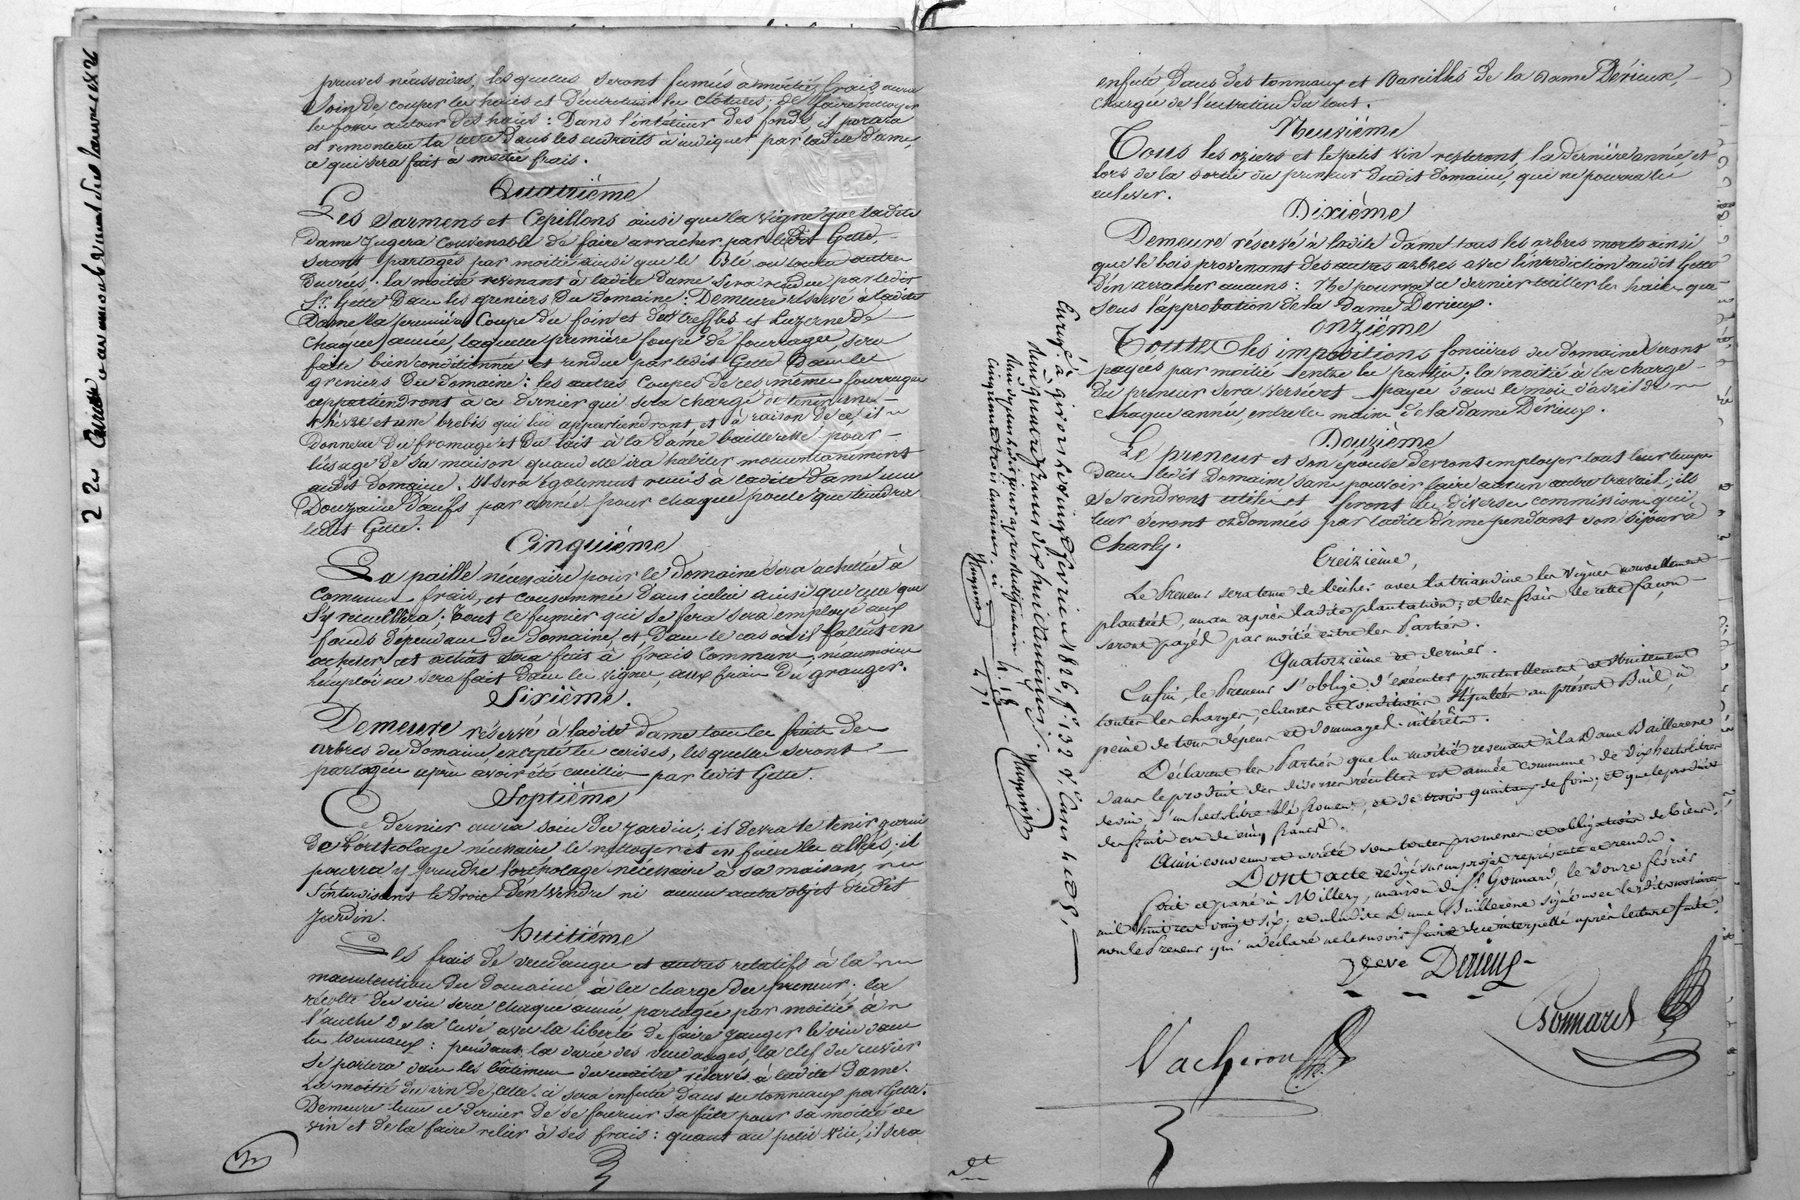 preuves nécessaires, lesquelles seront fumés à moitié frais, aura
Soin de couper les haies et d'entretenir les clôtures, de faire nettoyer
les fossés autour des haies : Dans l'intérieur des fonds il portera
et remontera la terre dans les endroits à indiquer par ladite Dame,
ce qui sera fait à moitié frais.
Quatrième
Les Sarmens et Cepillons ainsi que la vigne que ladite
Dame jugera convenable de faire arracher par ledit Gette,
seront partagés par moitié ainsi que le Blé ou toutes autres
Denrées : la moitié revenant à ladite Dame sera rendue par ledit
Sr. Gette Dans les greniers du Domaine : Demeure réservé à ladite
Dame la première Coupe du foin et des treffles et Luzerne de
chaque année, laquelle première Coupe de fourrages, sera
faite bien conditionnée et rendue par ledit Gette Dans les
greniers du Domaine : les autres Coupes de ces même fourrages
appartiendront à ce dernier qui sera chargé de tenir une
chèvre et une brebis qui lui appartiendront, et à raison de ce, il
Donnera du fromage et du lait à la Dame bailleresse pour
l'usage de sa maison quand elle ira habiter momentanément
audit domaine. Il sera également remis à ladite Dame une
Douzaine d'œufs par année pour chaque poule que tiendra
ledit Gette.
Cinquième
La paille nécessaire pour le Domaine sera achettée à
Communs frais, et consommée dans icelui ainsi que celle qui
s'y recueillera ; tout le fumier qui se fera sera employé aux
fonds dépendans du Domaine, et Dans le cas où il fallût en
acheter cet achat sera fait à frais Communs, néanmoins
l'emploi ne sera fait dans les vignes, aux frais du granger.
Sixième.
Demeure réservé à ladite dame tous les fruits des
arbres du Domaine, excepté les cerises, lesquelles seront
partagées après avoir été cueillies par ledit Gette.
Septième
Ce dernier aura soin du Jardin ; il devra le tenir garni
de l'ortholage nécessaire le nettoyer et en faire les allées ; il
pourra y prendre l'ortholage nécessaire à sa maison,
s'interdisant le droit d'en vendre ni aucun autre objet dudit
Jardin.
huitième
Les frais de vendanges et autres relatifs à la
manutention du domaine à la charge du preneur. la
récolte du vin sera chaque année partagée par moitié à
l'anche de la Cuve avec la liberté de faire jauger le vin dans
les tonneaux : pendant la durée des vendanges, la clef du cuvier
se portera dans les bâtimens du maître réservés à ladite Dame.
La moitié du vin de celle-ci sera enfutée dans ses tonneaux par Gette.
Demeure tenu ce dernier de se fournir sa fûte pour sa moitié de
vin et de la faire relier à ses frais : quant au petit vin, il sera
enfuté dans des tonneaux et Bareilles de la Dame Dérieux,
chargée de l'entretien du tout.
Neuvième
Tous les oziers et le petit vin resteront, la dernière année et
lors de la sortie du preneur dudit domaine, qui ne pourra les
enlever.
Dixième
Demeure réservé à ladite dame tous les arbres morts ainsi
que le bois provenant des autres arbres avec l'interdiction audit Gette
d'en arracher aucuns : Ne pourra ce dernier tailler les haies que
sous l'approbation de la Dame Derieux.
Onzième
Toutes les impositions foncières du domaine seront
payées par moitié entre les parties. la moitié à la charge
du preneur sera versée et payée dans le mois d'avril de
chaque année, entre les mains de la dame Dérieux.
Douzième
Le preneur et son épouse devront employer tout leur temps
dans ledit Domaine sans pouvoir faire aucun autre travail ; ils
se rendront utiles et feront les diverses commissions qui
leur seront ordonnées par ladite dame pendant son séjour à
Charly.
Treizième,
Le Preneur sera tenu de bêcher avec la triandine les vignes nouvellement
plantées, un an après ladite plantation ; et les frais de cette façon
seront payés par moitié entre les Parties.
Quatorzième et dernier.
Enfin, le Preneur s'oblige d'exécuter ponctuellement et strictement
toutes les charges, clauses et conditions stipulées au présent Bail, à
peine de tous dépens et dommages-intérêts.
Déclarent les Parties que la moitié revenant à la Dame Bailleresse
dans le produit des diverses récoltes est année commune de dix hectolitres
de vin, d'un hectolitre blé froment, et de trois quintaux de foin ; et que le produit
des fruits est de cinq francs.
Ainsi convenu et arrêté sous toutes promesses et obligations de biens.
Dont acte rédigé sur un projet représenté et rendu.
Fait et passé à Millery, maison du Sr. Gonnard, le douze février
mil huit cent vingt six ; et a ladite Dame Bailleresse signé avec lesdits notaires
non le Preneur qui a déclaré ne le savoir faire de ce interpellé après lecture faite.
Veve Derieux
Gonnard
Vacheron
Enregé. à Givors le vingt février 1826, fo. 132